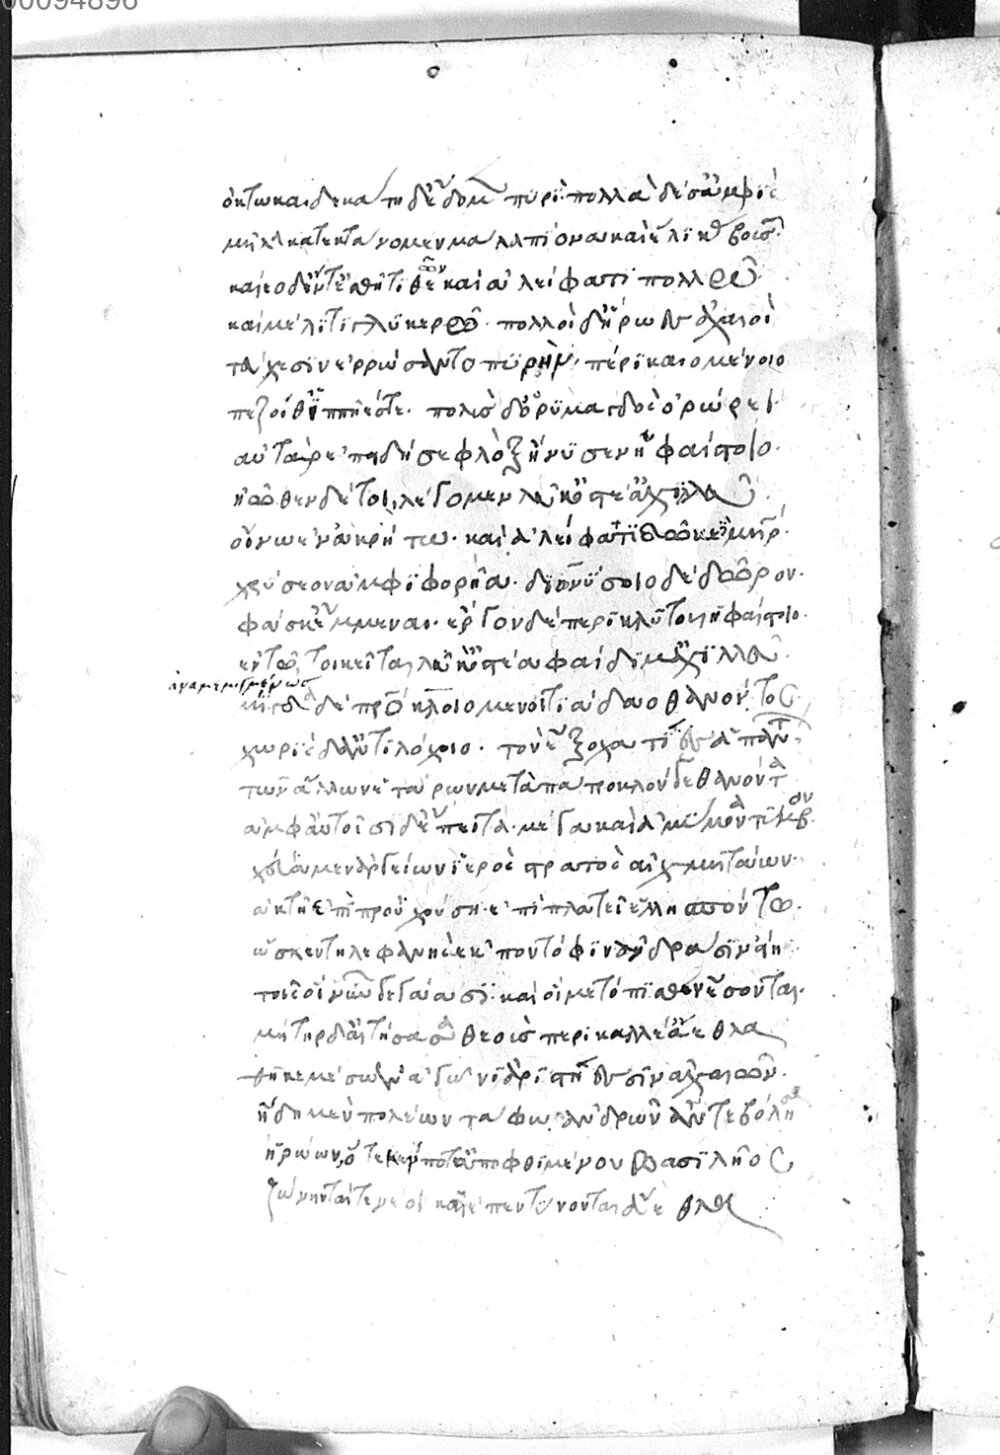 00094896
ὀκτωκαιδεκάτη δ' ἔδομεν πυρὶ· πολλὰ δέ σ' ἀμφὶς
μῆλα κατεκτάνομεν μάλα πίονα καὶ ἕλικας βοῦς·
καίεο δ' ἔν τ' ἐσθῆτι θεῶν καὶ ἀλείφατι πολλῶ
καὶ μέλιτι γλυκερῶ· πολλοὶ δ' ἥρωες ἀχαιοὶ
τεύχεσιν ἐρρώσαντο πυρὴν πέρι καιομένοιο
πεζοί θ' ἱππῆές τε· πολὺς δ' ὀρυμαγδὸς ὀρώρει·
αὐτὰρ ἐπειδή σε φλὸξ ἤνυσεν ἡφαίστοιο·
ἠῶθεν δέ τοι λέγομεν λεύκ' ὀστέ' ἀχιλλεῦ·
οἴνω ἐν ἀκρήτω· καὶ ἀλείφατι· δῶκε δὲ μήτηρ·
χρύσεον ἀμφιφορῆα· διωνύσοιο δὲ δῶρον·
φάσκ' ἔμμεναι· ἔργον δὲ περικλυτοῦ ἡφαίστοιο·
ἐν τῶ τοι κεῖται λεύκ' ὀστέα φαίδιμ' ἀχιλλεῦ·
ἀναμεμιγμένως
μίγδα δὲ πατρόκλοιο μενοιτιάδαο θανόντος
χωρὶς δ' ἀντιλόχοιο· τὸν ἔξοχα τῖες ἁπάντων
τῶν ἄλλων ἑτάρων μετὰ πάτροκλόν γε θανόντα
ἀμφ' αὐτοῖσι δ' ἔπειτα μέγαν καὶ ἀμύμονα τύμβον
χεύαμεν ἀργείων ἱερὸς στρατὸς αἰχμητάων·
ἀκτῇ ἐπὶ προὐχούση· ἐπὶ πλατεῖ ἑλλησπόντω·
ὥς κεν τηλεφανὴς ἐκ ποντόφιν ἀνδράσιν εἴη
τοῖς οἳ νῦν γεγάασι· καὶ οἳ μετόπισθεν ἔσονται·
μήτηρ δ' αἰτήσασα θεοὺς περικαλλέ' ἄεθλα
θῆκε μέσω ἐν ἀγῶνι ἀριστήεσσιν ἀχαιῶν·
ἤδη μὲν πολέων τάφω ἀνδρῶν ἀντεβόλησα
ἡρώων, ὅτε κέν ποτ' ἀποφθιμένου βασιλῆος
ζώννυνταί τε νέοι καὶ ἐπεντύνονται ἄεθλα